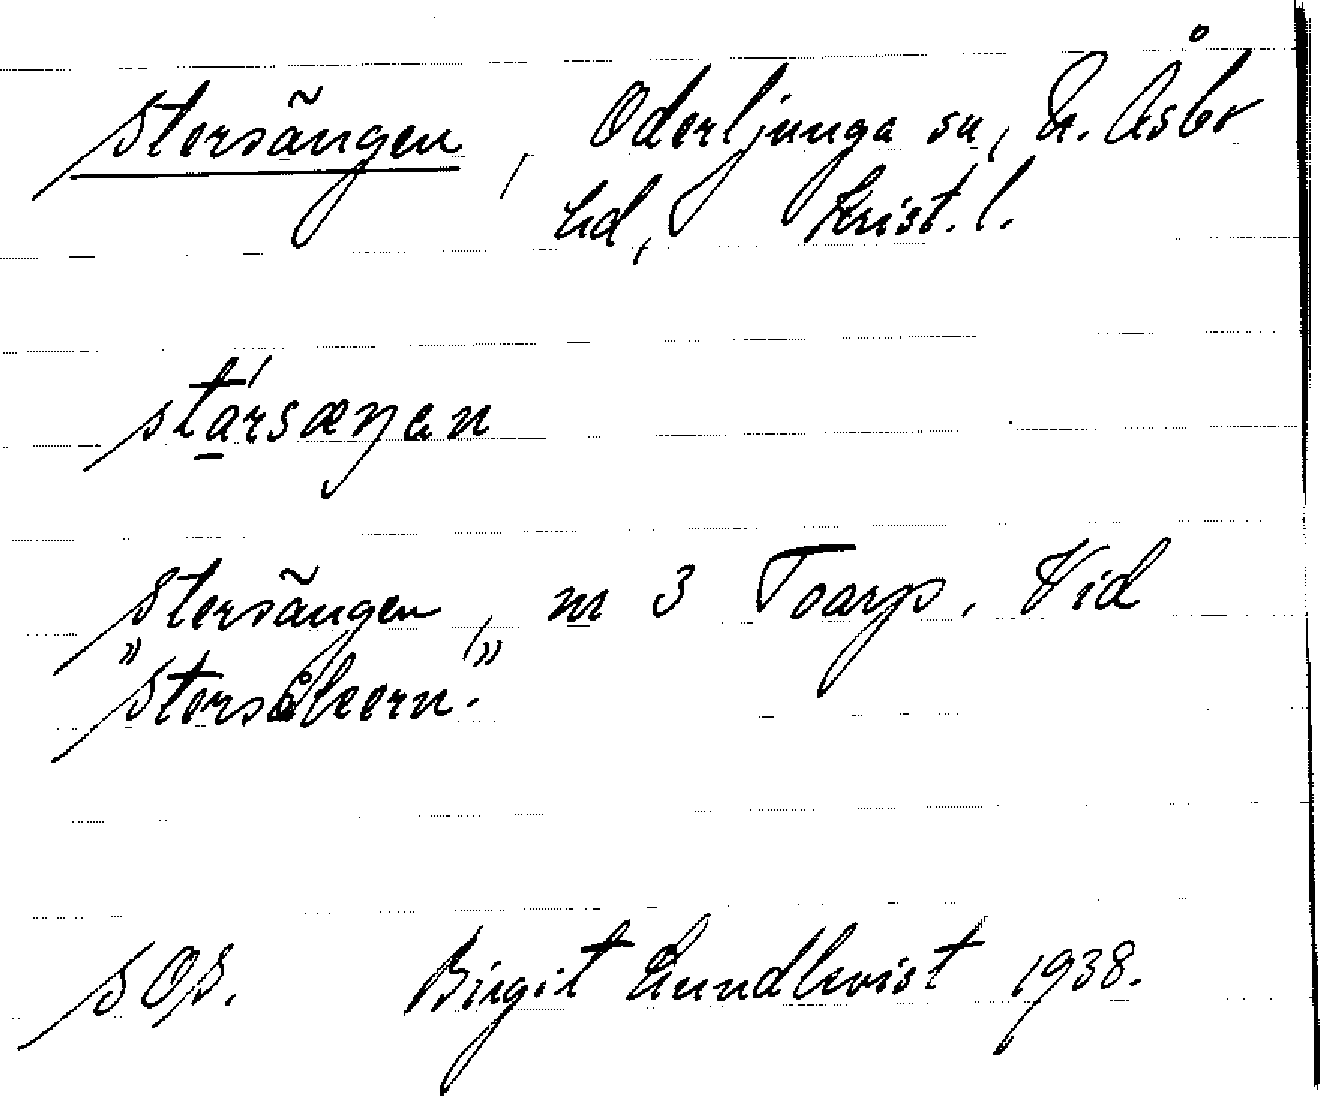 Storsängen, Oderljunga sn, N. Åsbo
hd, Krist. l.
stårsæŋən
Storsängen, m 3 Toarp. Vid
"Storsåkern."
SOS. Birgit Lundkvist 1938.